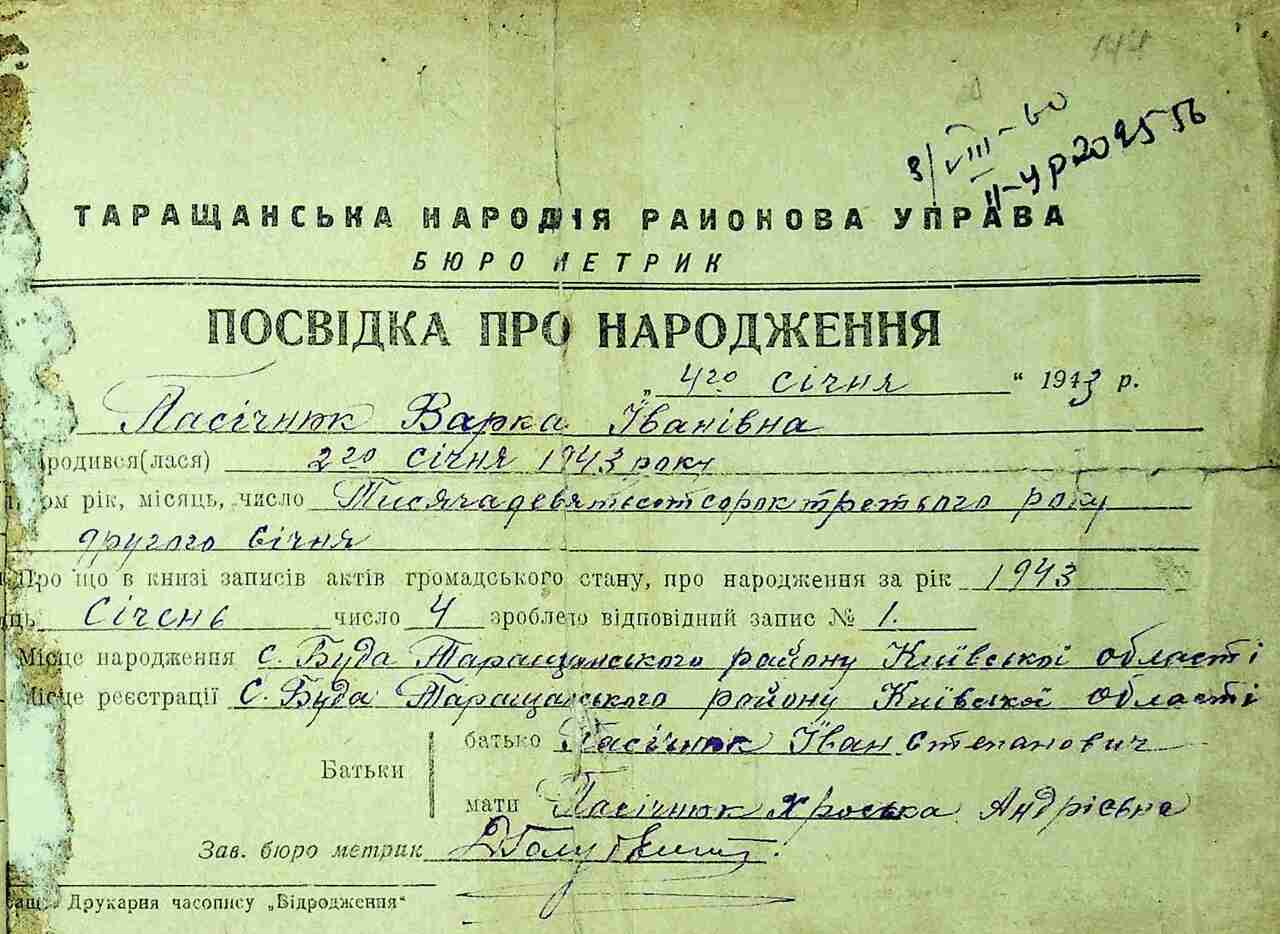 3/VIII-60
II-УР 209556
ТАРАЩАНСЬКА НАРОДНЯ РАЙОНОВА УПРАВА
БЮРО МЕТРИК
ПОСВІДКА ПРО НАРОДЖЕННЯ
„ 4го січня “ 1943 р.
Пасічнюк Варка Іванівна
народився(лася) 2го січня 1943 року
рік, місяць, число Тисяча девятьсот сорок третього року
другого Січня
Про що в книзі записів актів громадського стану, про народження за рік 1943
Січень число 4 зроблено відповідний запис № 1.
Місце народження с. Буда Таращанського району Київської області
Місце реєстрації с. Буда Таращанського району Київської області
батько Пасічнюк Іван Степанович
Батьки
мати Пасічнюк Хроська Андрієвна
Зав. бюро метрик
Друкарня часопису „Відродження“